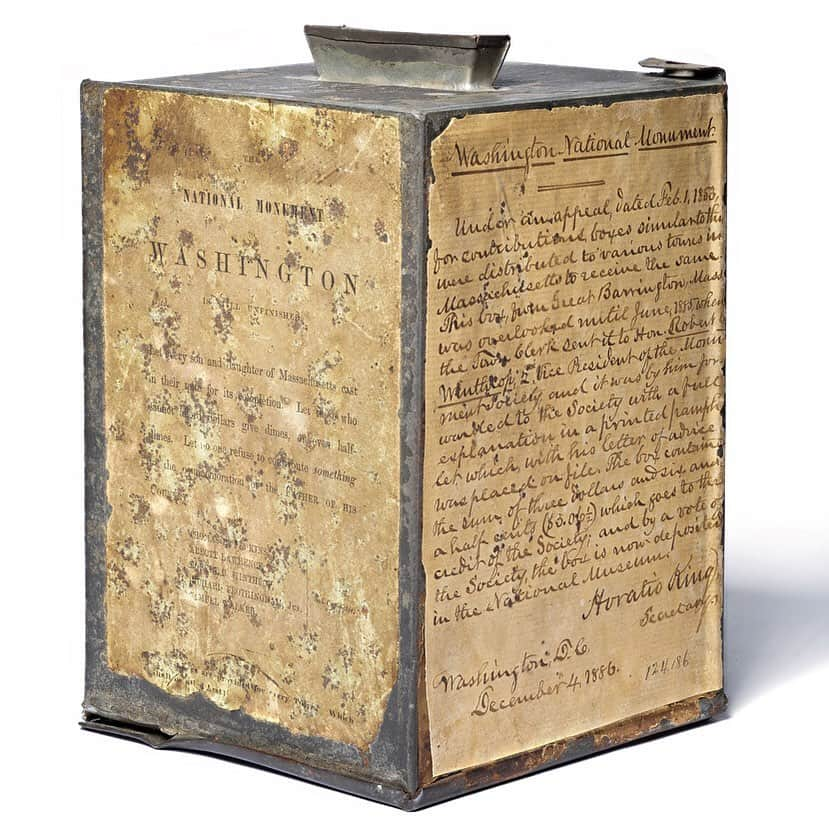 THE
NATIONAL MONUMENT
WASHINGTON
IS STILL UNFINISHED
every son and daughter of Massachusetts cast
in their mite for its completion. Let those who
cannot give dollars give dimes, or even half-
dimes. Let no one refuse to contribute something
the commemoration of the FATHER OF HIS
ABBOTT LAWRENCE
RICHARD FROTHINGHAM, JR.
SAMUEL WALKER
Washington National Monument.
Under an appeal, dated Feb. 1, 1853,
for contributions, boxes similar to this
were distributed to various towns in
Massachusetts to receive the same.
This box, from Great Barrington, Mass.
was overlooked until June, 1885 when
the Town Clerk sent it to Hon. Robert
Winthrop, 2d Vice President of the Monu-
ment Society and it was by him for-
warded to the Society with a full
explanation in a printed pamph-
let which, with his letter of advice
was placed on file. The box contain
the sum of three dollars and six and
a half cents ($3.06½) which goes to the
credit of the Society; and by a vote of
the Society, the box is now deposited
in the National Museum.
Horatio King,
Secretary.
Washington, D.C.
December 4, 1886.
124,186